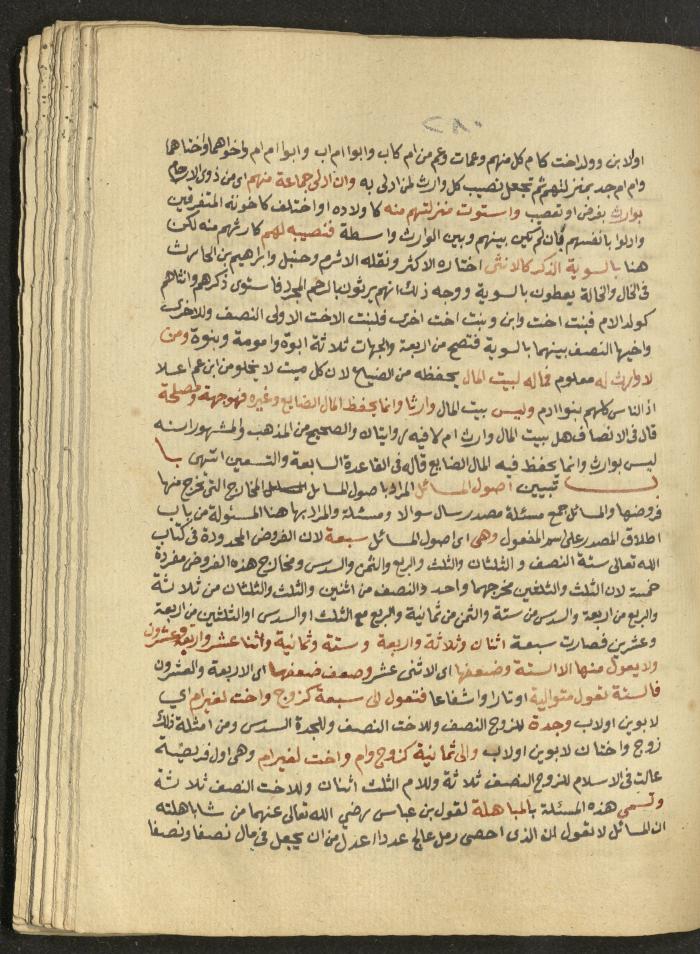 ٢٨٠
او لابن وولد اخت كام كل منهم وعمات وعم من ام كاب وابوا ام اب وابوا ام ام واخواهما واختاهما
وام ام جد بمنزلتهم ثم تجعل نصيب كل وارث لمن ادلى به وان ادلى جماعة منهم اى من ذوى الارحام
بوارث بفرض او تعصيب واستوت منزلتهم منه كاولاده او اختلف كاخوته المتفرقين
وادلوا بانفسهم فان لم يكن بينهم وبين الوارث واسطة فنصيبه لهم كارثهم منه لكن
هنا بالسوية الذكر كالانثى اختاره الاكثر ونقله الاثرم وحنبل وابراهيم بن الحارث
فى الخال والخالة يعطون بالسوية ووجه ذلك انهم يرثون بالرحم المجرد فاستوى ذكرهم وانثاهم
كولد الام فبنت اخت وابن وبنت اخت اخرى فلبنت الاخت الاولى النصف وللاخرى
واخيها النصف بينهما بالسوية فتصح من اربعة والجهات ثلاثة ابوة وامومة وبنوة ومن
لا وارث له معلوم فماله لبيت المال يحفظه من الضياع لان كل ميت لا يخلو من ابن عم اعلا
اذ الناس كلهم بنوا ادم وليس بيت المال وارثا وانما يحفظ المال الضايع وغيره فهو جهة ومصلحة
قال فى الانصاف هل بيت المال وارث ام لا فيه روايتان والصحيح من المذهب والمشهور انه
ليس بوارث وانما يحفظ فيه المال الضايع قاله فى القاعدة السابعة والتسعين انتهى با
ب تبيين اصول المسائل المراد باصول المسايل المخارج التى تخرج منها
فروضها والمسائل جمع مسئلة مصدر سال سوالا ومسئلة والمراد بها هنا المسئولة من باب
اطلاق المصدر على اسم المفعول وهى اى اصول المسائل سبعة لان الفروض المحدودة فى كتاب
الله تعالى ستة النصف والثلثان والثلث والربع والثمن والسدس ومخارج هذه الفروض مفردة
خمسة لان الثلث والثلثين مخرجهما واحد فالنصف من اثنين والثلث والثلثان من ثلاثة
والربع من اربعة والسدس من ستة والثمن من ثمانية والربع مع الثلث او السدس او الثلثين من اربعة
وعشرين فصارت سبعة اثنان وثلاثة واربعة وستة وثمانية واثنا عشر واربعة وعشرون
ولا يعول منها الا الستة وضعفها اى الاثنى عشر وضعف ضعفها اى الاربعة والعشرون
فالستة تعول متوالية اوتارا واشفاعا فتعول الى سبعة كزوج واخت لغير ام اي
لابوين او لاب وجدة للزوج النصف وللاخت النصف وللجدة السدس ومن امثلة ذلك
زوج واختان لابوين او لاب والى ثمانية كزوج وام واخت لغير ام وهى اول فريضة
عالت فى الاسلام للزوج النصف ثلاثة وللام الثلث اثنان وللاخت النصف ثلاثة
وتسمى هذه المسئلة بالمباهلة لقول بن عباس رضي الله تعالى عنهما من شا باهلته
ان المسائل لا تعول ان الذى احصى رمل عالج عددا اعدل من ان يجعل فى مال نصفا ونصفا